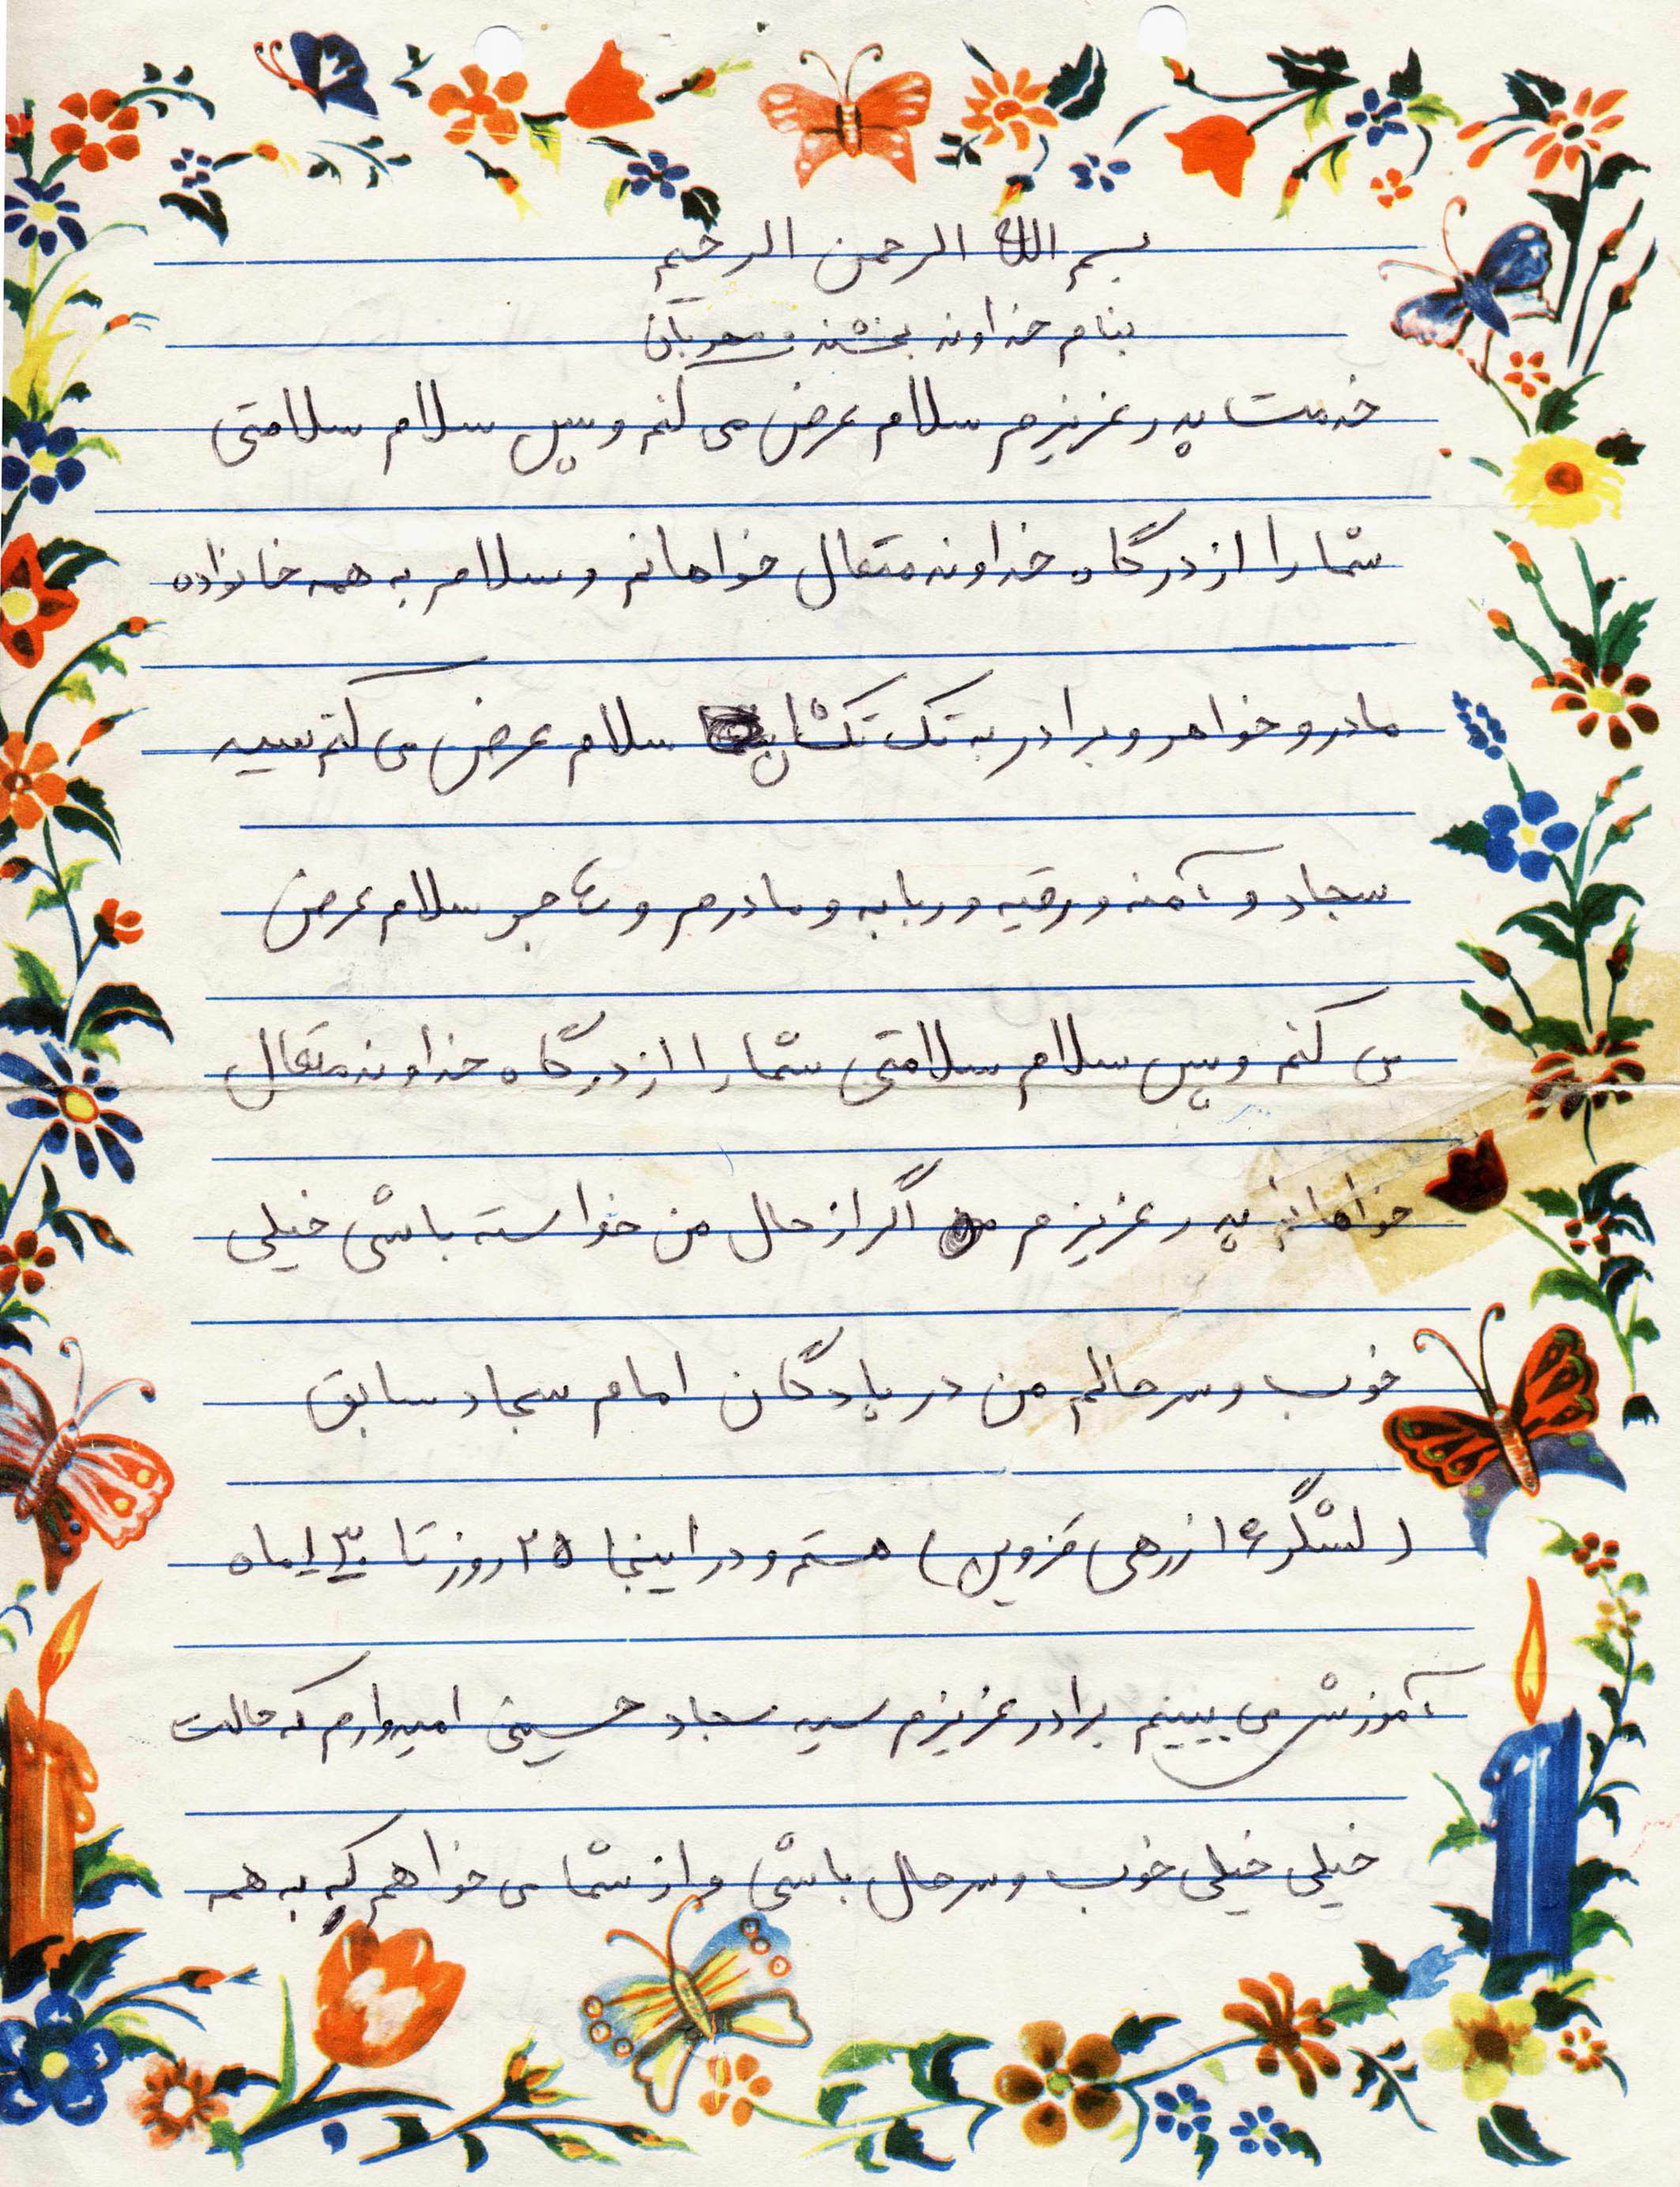 بسم الله الرحمن الرحیم
بنام خداوند بخشنده مهربان
خدمت پدر عزیزم سلام عرض می کنم و پس سلام سلامتی
شما را از درگاه خداوند متعال خواهانم و سلام به همه خانواده
مادر و خواهر و برادر به تک تکشان سلام عرض می کنم سید
سجاد و آمنه و رقیه و ربابه و مادرم و سلام عرض
می کنم و پس سلام سلامتی شما را از درگاه خداوند متعال
خواهانم پدر عزیزم اگر از حال من خواسته باشی خیلی
خوب و سر حالم من در پادگان امام سجاد سابق
( لشگر ۱۶ زرهی قزوین ) هستم و در اینجا ۲۵ روز تا ماه
آموزش می بینیم برادر عزیزم سید سجاد حسینی امیدوارم که حالت
خیلی خیلی خوب و سر حال باشی و از شما می خواهم که به همه